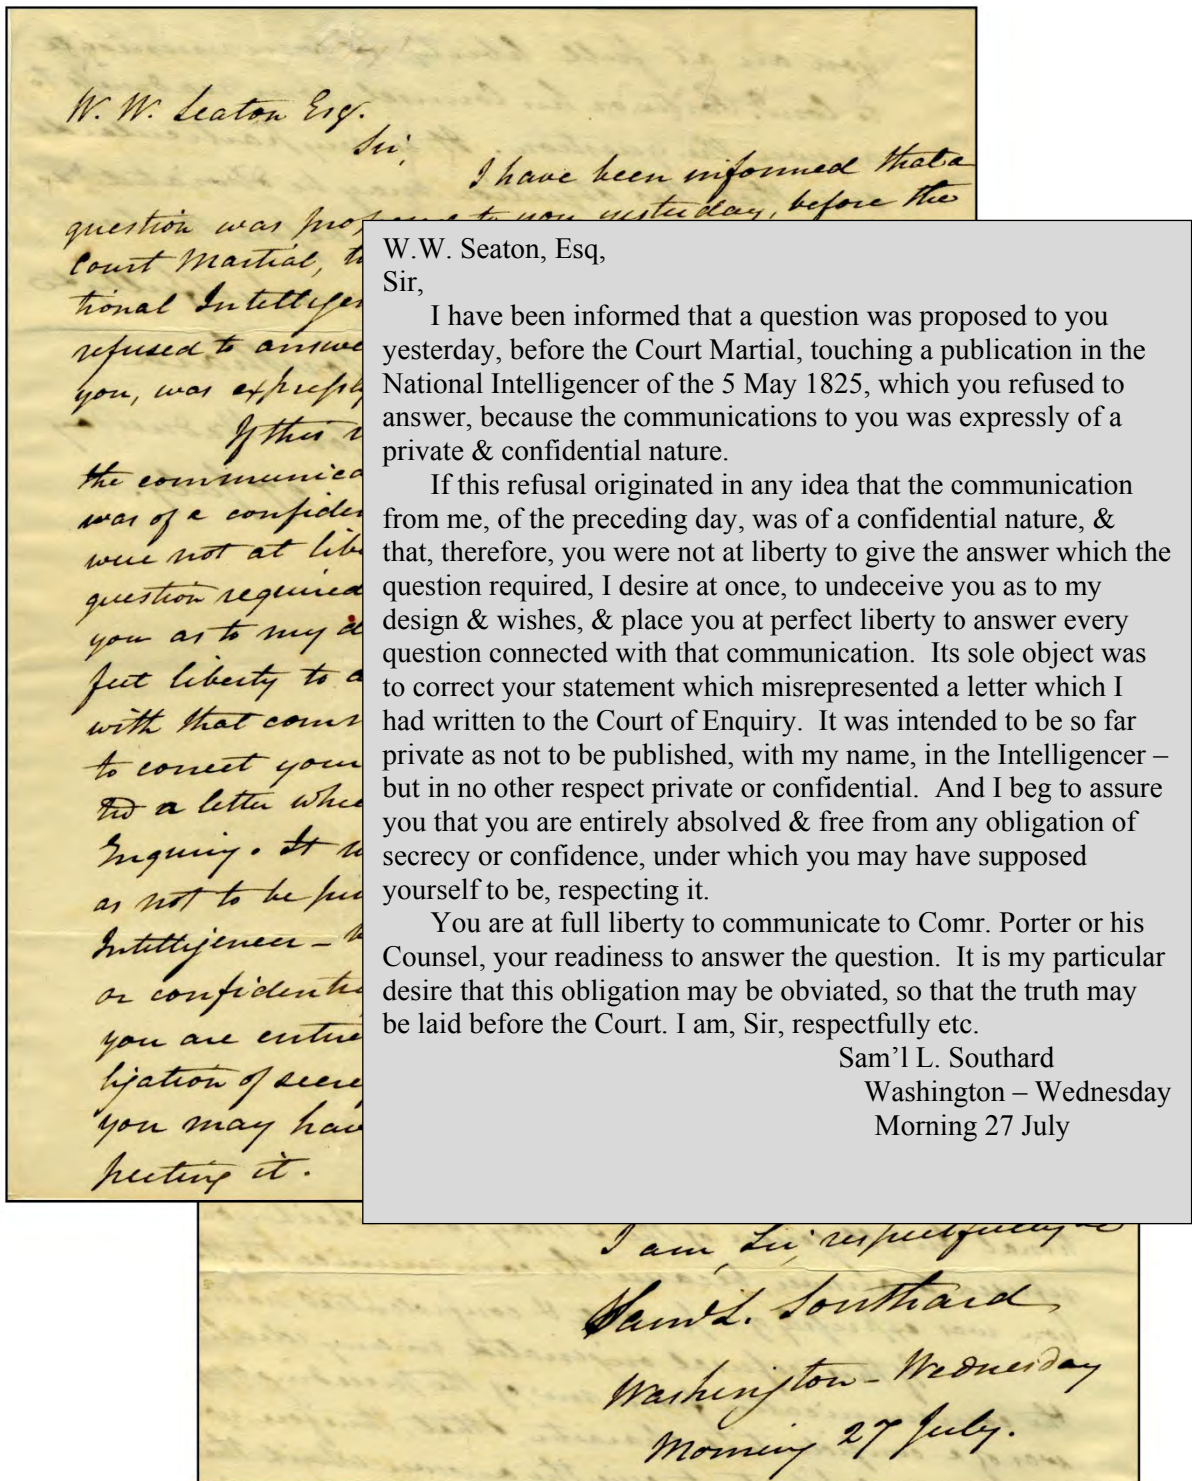 W. W. Seaton Esq.
Sir,
I have been informed that a
question was proposed to you yesterday, before the
Court Martial, t
tional Intelligen
refused to answe
you, was expressly
If this
the communica
was of a confiden
were not at libe
question required
you as to my d
fect liberty to a
with that comm
to correct your
ted a letter whic
Enquiry. It
as not to be pu
Intelligencer –
or confidentia
you are entire
ligation of secre
you may hav
pecting it.
W.W. Seaton, Esq,
Sir,
I have been informed that a question was proposed to you
yesterday, before the Court Martial, touching a publication in the
National Intelligencer of the 5 May 1825, which you refused to
answer, because the communications to you was expressly of a
private & confidential nature.
If this refusal originated in any idea that the communication
from me, of the preceding day, was of a confidential nature, &
that, therefore, you were not at liberty to give the answer which the
question required, I desire at once, to undeceive you as to my
design & wishes, & place you at perfect liberty to answer every
question connected with that communication. Its sole object was
to correct your statement which misrepresented a letter which I
had written to the Court of Enquiry. It was intended to be so far
private as not to be published, with my name, in the Intelligencer –
but in no other respect private or confidential. And I beg to assure
you that you are entirely absolved & free from any obligation of
secrecy or confidence, under which you may have supposed
yourself to be, respecting it.
You are at full liberty to communicate to Comr. Porter or his
Counsel, your readiness to answer the question. It is my particular
desire that this obligation may be obviated, so that the truth may
be laid before the Court. I am, Sir, respectfully etc.
Sam’l L. Southard
Washington – Wednesday
Morning 27 July
I am, Sir, respectfully &c
Sam'l L. Southard
Washington – Wednesday
Morning 27 July.